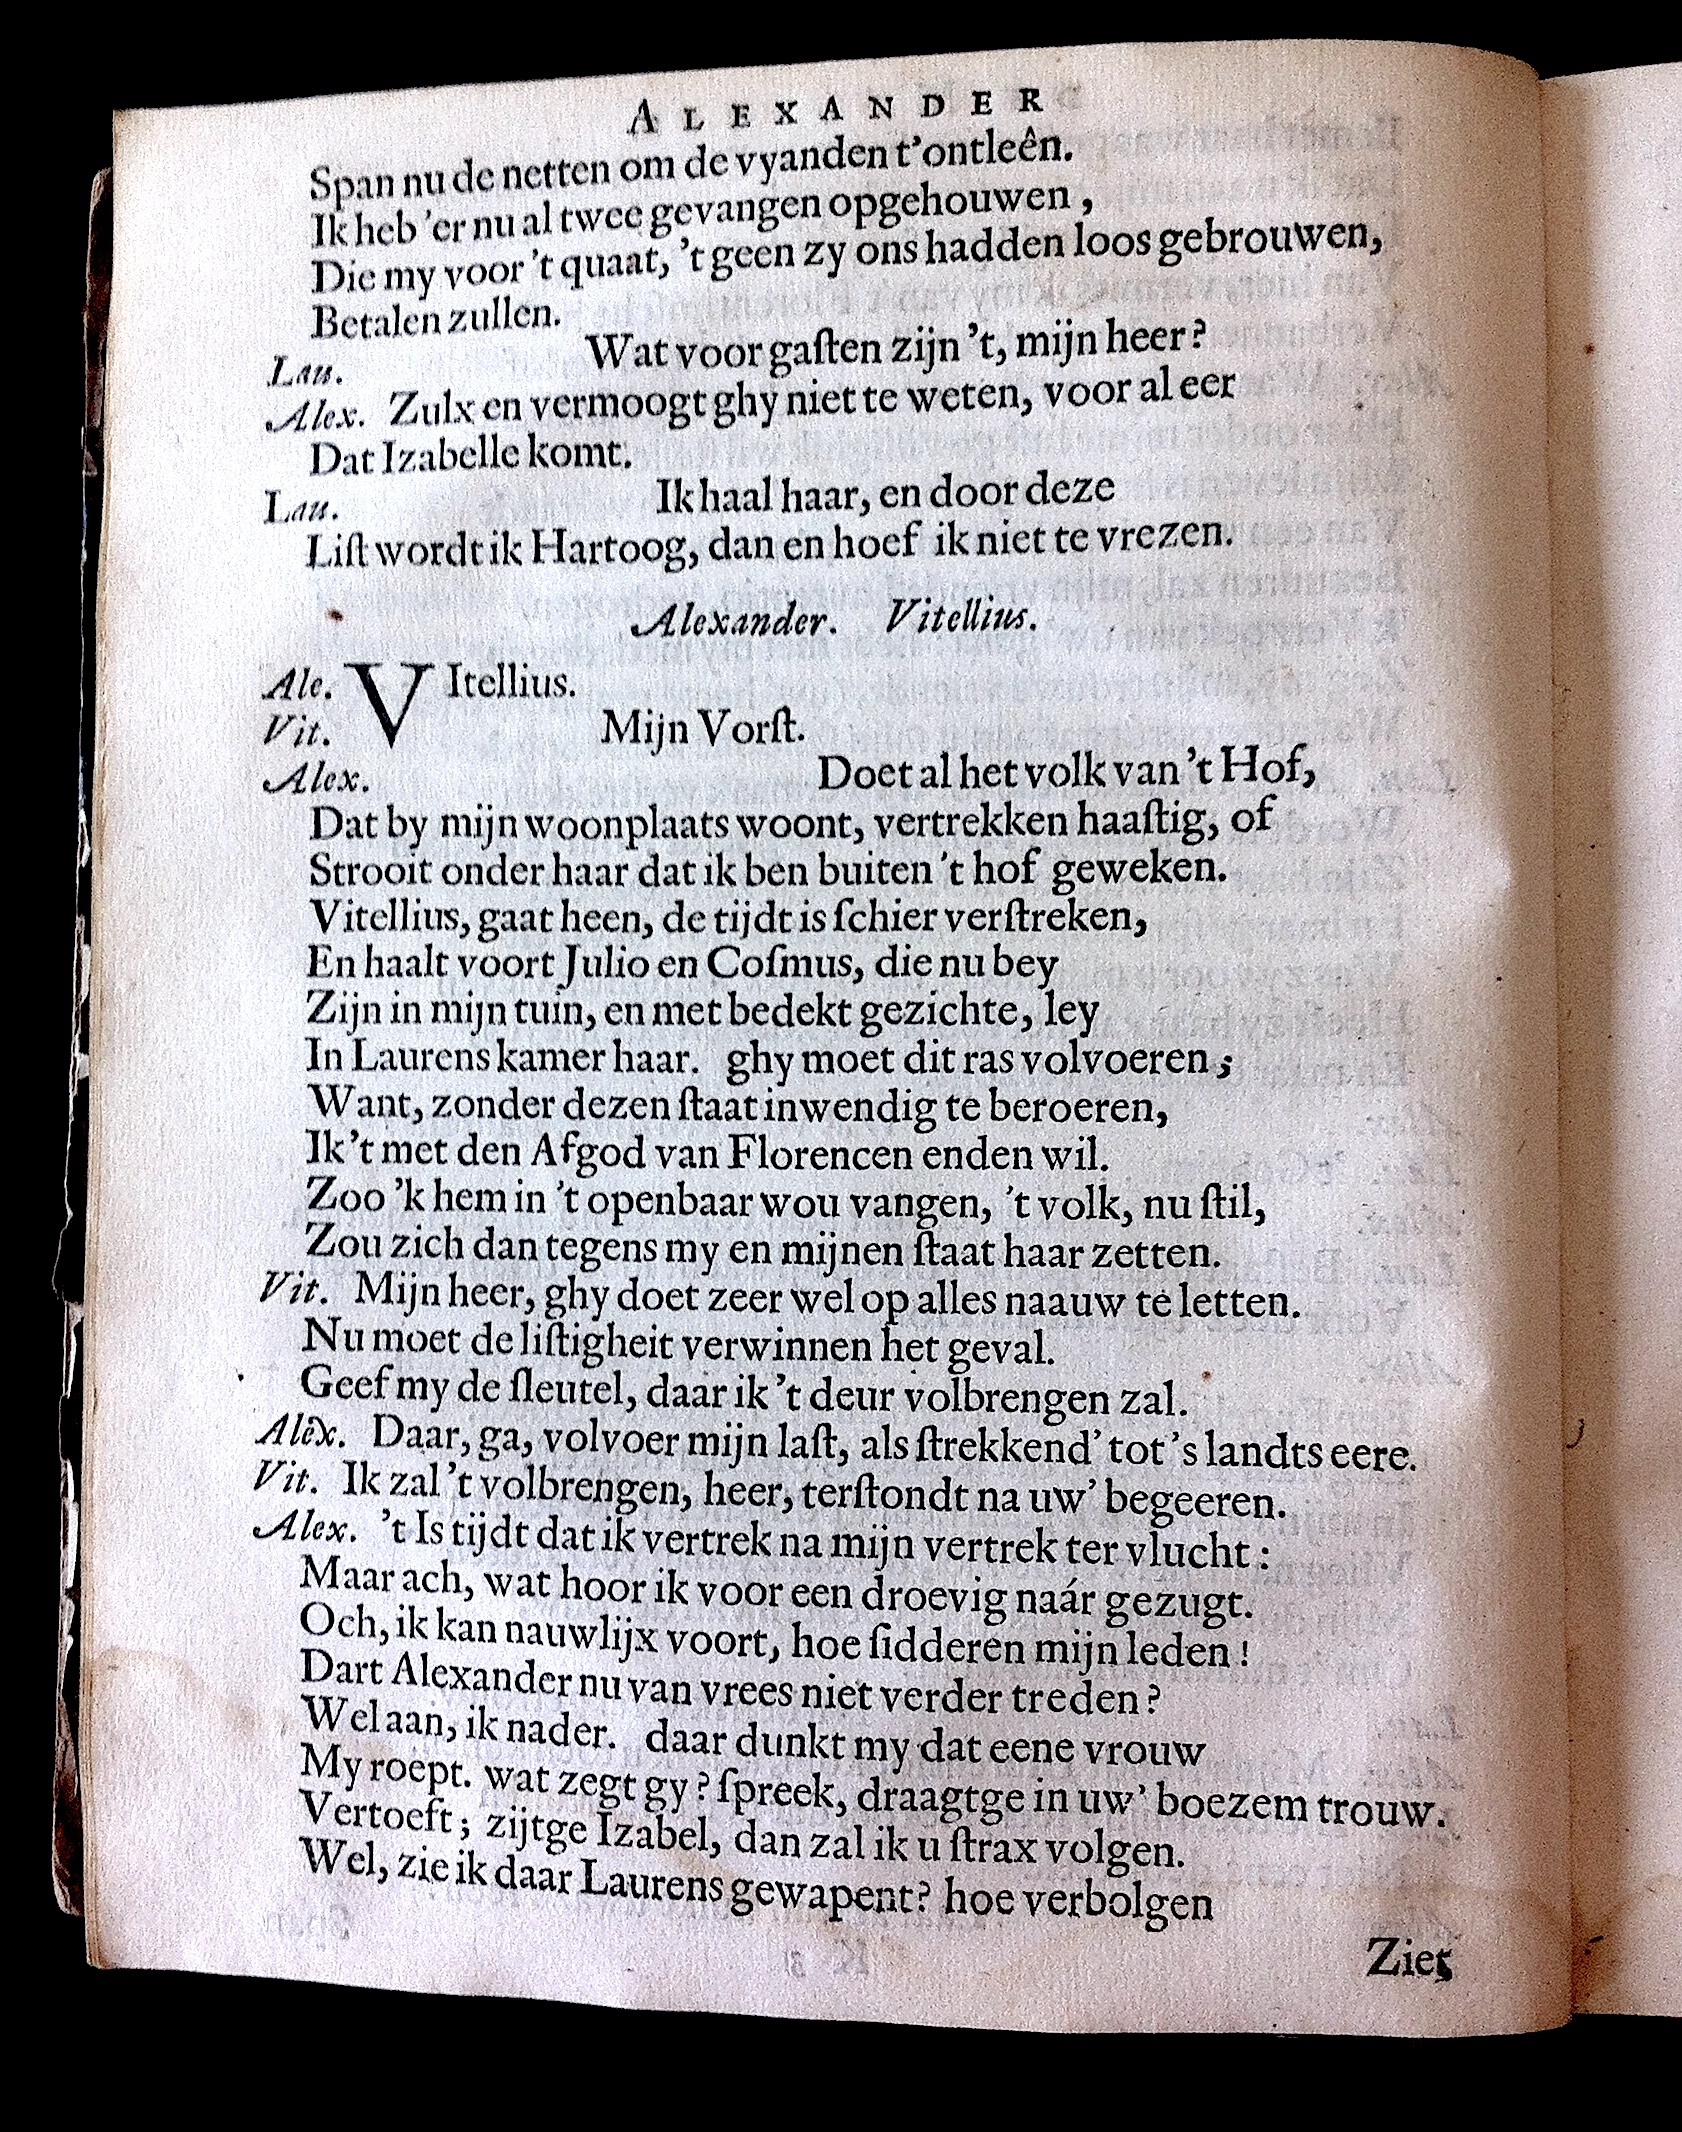 ALEXANDER
Span nu de netten om de vyanden t'ontleên.
Ik heb 'er nu al twee gevangen opgehouwen,
Die my voor 't quaat, 't geen zy ons hadden loos gebrouwen,
Betalen zullen.
Lau. Wat voor gaſten zijn 't, mijn heer?
Alex. Zulx en vermoogt ghy niet te weten, voor al eer
Dat Izabelle komt.
Lau. Ik haal haar, en door deze
Liſt wordt ik Hartoog, dan en hoef ik niet te vrezen.
Alexander. Vitellius.
Ale. VItellius.
Vit. Mijn Vorſt.
Alex. Doet al het volk van 't Hof,
Dat by mijn woonplaats woont, vertrekken haaſtig, of
Strooit onder haar dat ik ben buiten 't hof geweken.
Vitellius, gaat heen, de tijdt is ſchier verſtreken,
En haalt voort Julio en Coſmus, die nu bey
Zijn in mijn tuin, en met bedekt gezichte, ley
In Laurens kamer haar. ghy moet dit ras volvoeren;
Want, zonder dezen ſtaat inwendig te beroeren,
Ik 't met den Afgod van Florencen enden wil.
Zoo 'k hem in 't openbaar wou vangen, 't volk, nu ſtil,
Zou zich dan tegens my en mijnen ſtaat haar zetten.
Vit. Mijn heer, ghy doet zeer wel op alles naauw te letten.
Nu moet de liſtigheit verwinnen het geval.
Geef my de ſleutel, daar ik 't deur volbrengen zal.
Alex. Daar, ga, volvoer mijn laſt, als ſtrekkend' tot 's landts eere.
Vit. Ik zal 't volbrengen, heer, terſtondt na uw' begeeren.
Alex. 't Is tijdt dat ik vertrek na mijn vertrek ter vlucht:
Maar ach, wat hoor ik voor een droevig naár gezugt.
Och, ik kan nauwlijx voort, hoe ſidderen mijn leden!
Dart Alexander nu van vrees niet verder treden?
Wel aan, ik nader. daar dunkt my dat eene vrouw
My roept. wat zegt gy? ſpreek, draagtge in uw' boezem trouw.
Vertoeft; zijtge Izabel, dan zal ik u ſtrax volgen.
Wel, zie ik daar Laurens gewapent? hoe verbolgen
Ziet